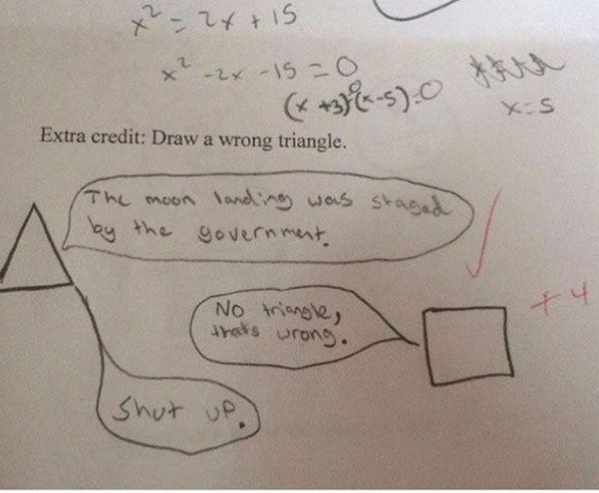 x² = 2x + 15
x² - 2x - 15 = 0
(x +3)(x-5)=0
x=5
Extra credit: Draw a wrong triangle.
The moon landing was staged
by the government.
No triangle,
thats wrong.
+4
Shut up.